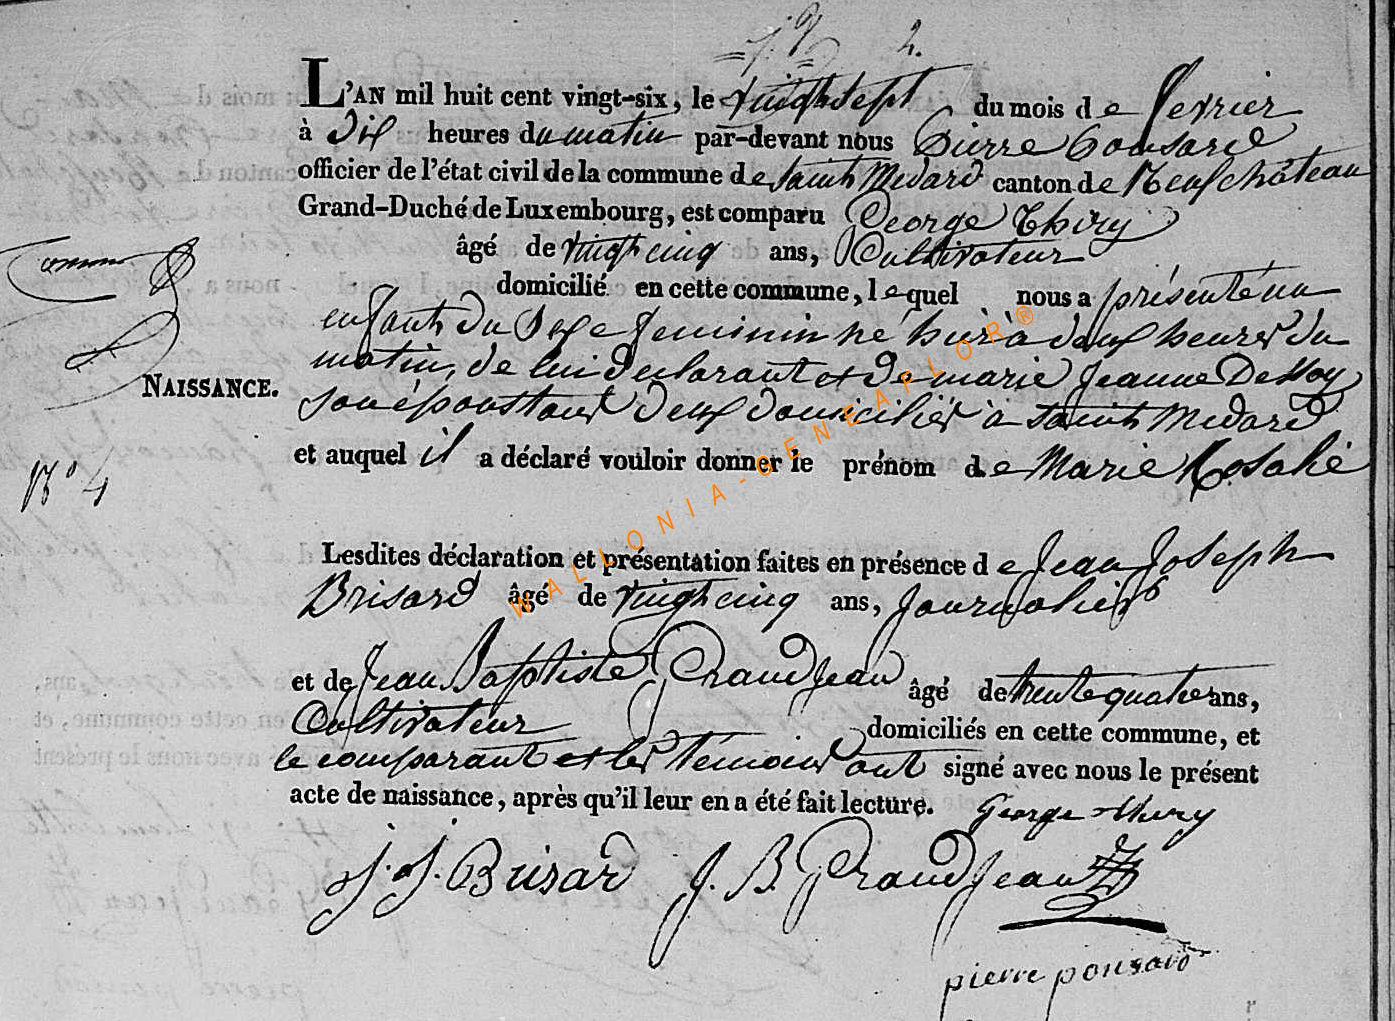 L'AN mil huit cent vingt-six, le vingt sept du mois de fevrier
à dix heures du matin par-devant nous Pierre Ponsard
officier de l'état civil de la commune de Saint Medard canton de Neufchâteau
Grand-Duché de Luxembourg, est comparu George Thiry
âgé de vingt cinq ans, Cultivateur
domicilié en cette commune, lequel nous a présenté un
enfant du Sexe feminin né hier à deux heures du
matin, de lui declarant et de marie Jeanne Dessoy
son épouse tous deux domiciliés à Saint Medard
et auquel il a déclaré vouloir donner le prénom de Marie Rosalie
NAISSANCE.
N° 4
Lesdites déclaration et présentation faites en présence de Jean Joseph
Brisard âgé de vingt cinq ans, Journalier
et de Jean Baptiste Grandjean âgé de trente quatre ans,
Cultivateur domiciliés en cette commune, et
le comparant et les témoins ont signé avec nous le présent
acte de naissance, après qu'il leur en a été fait lecture. George thiry
J. J. Brisard J. B. Grandjean
pierre ponsard
WALLONIA-GENEAFLOR®